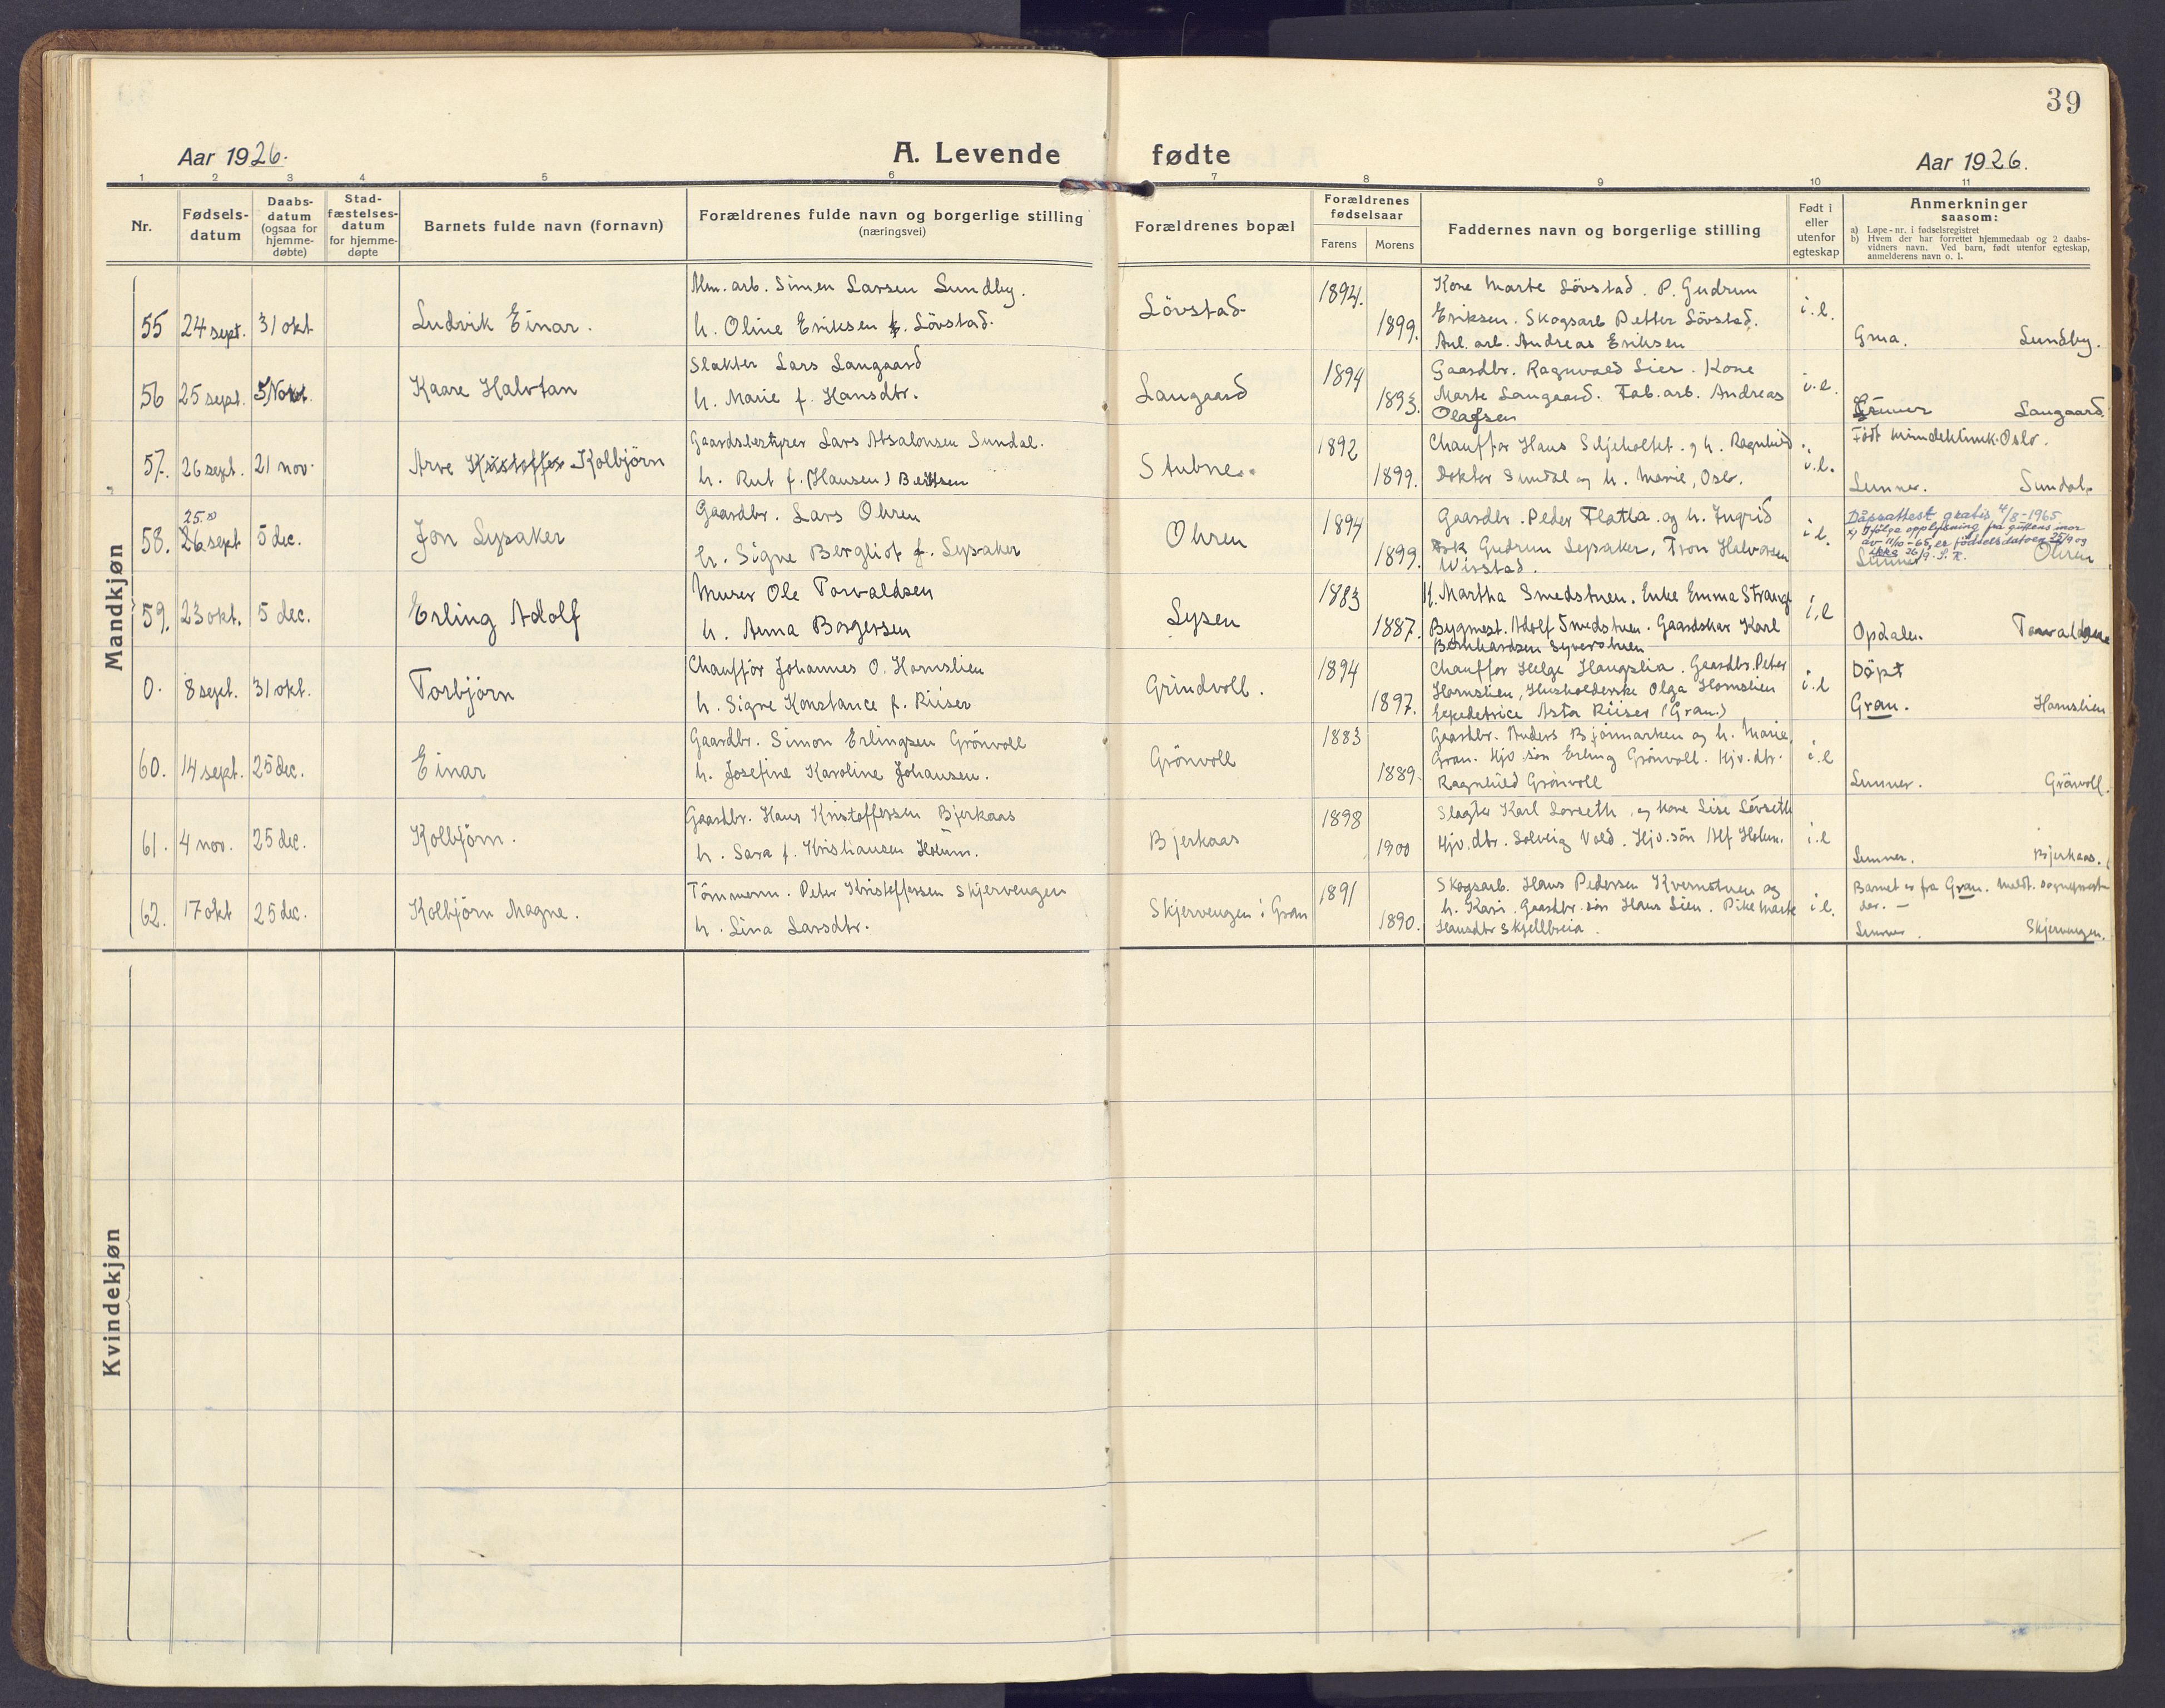 39
Aar 1926.
A. Levende fødte
Aar 1926.
1 2 3 4 5 6 7 8 9 10 11
Nr.
Fødsels-
datum
Daabs-
datum
(ogsaa for
hjemme-
døbte)
Stad-
fæstelses-
datum
for hjemme-
døpte
Barnets fulde navn (fornavn)
Forældrenes fulde navn og borgerlige stilling
(næringsvei)
Forældrenes bopæl
Forældrenes
fødselsaar
Farens Morens
Faddernes navn og borgerlige stilling
Født i
eller
utenfor
egteskap
Anmerkninger
saasom:
a) Løpe-nr. i fødselsregistret
b) Hvem der har forrettet hjemmedaab og 2 daabs-
vidners navn. Ved barn, født utenfor egteskap,
anmelderens navn o. l.
Mandkjøn
55 24 sept. 31 okt
Ludvik Einar.
Alm. arb. Simen Larsen Lundby.
h. Oline Eriksen f. Lövstad.
Lövstad
1894.
1899.
Kone Marte Lövstad. P. Gudrun
Eriksen. Skogsarb Petter Lövstad.
Anl. arb. Andreas Eriksen
i.e.
Grua. Lundby.
56 25 sept. 5 Nov.
Kaare Halvtan
Slakter Lars Langaard
h. Marie f. Hansdtr.
Langaard
1894
1893.
Gaardbr. Ragnvald Lier. Kone
Marte Langaard. Fab. arb. Andreas
Olafsen
i.e.
Langaard.
57. 26 sept. 21 nov.
Arve Kristoffer Kolbjörn
Gaardsbestyrer Lars Absalonsen Sundal.
h. Rut f. (Hansen) Berntsen
Stubne.
1892
1899.
Chauffør Hans Siljeholtet. og h. Ragnhild.
Doktor Sundal og h. Marie, Oslo.
i.e.
Født kvindeklinik. Oslo.
Lunner. Sundal.
25. x)
58. 26 sept 5 dec.
Jon Lysaker
Gaardbr. Lars Ohren
h. Signe Bergliot f. Lysaker
Ohren
1894
1899.
Gaardbr. Peder Flatla og h. Ingrid
Gudrun Lysaker, Tron Halvorsen
Wirstad.
i.e.
Dåpsattest gratis 4/8-1965
x) Ifölge opplysning fra guttens mor
av 11/10-65, er födselsdatoen 25/9 og
ikke 26/9. S.R.
Lunner Ohren
59. 23 okt. 5 dec.
Erling Adolf
Murer Ole Torvaldsen
h. Anna Borgersen
Lysen
1883
1887.
K. Martha Smedstuen. Enke Emma Strang.
Bygmest. Adolf Smedstuen. Gaardskar Karl
Bernhardsen Syverstuen
i.e
Opdalen. Torvaldsen
0. 8 sept. 31 okt.
Torbjörn
Chauffør Johannes O. Hornslien
h. Signe Konstance f. Riiser
Grindvoll.
1894
1897.
Chauffør Helge Haugslia. Gaardbr. Peter
Hornslien, Husholderske Olga Hornslien
Expedetrice Asta Riiser (Gran.)
i.e
Döpt
Gran. Hornslien
60. 14 sept. 25 dec.
Einar
Gaardbr. Simon Erlingsen Grönvoll
h. Josefine Karoline Johansen.
Grönvoll
1883
1889.
Gaardbr. Anders Bjönmarken og h. Marie,
Gran. Hjv. sön Erling Grönvoll. Hjv. dtr.
Ragnhild Grönvoll
i.e
Lunner. Grönvoll.
61. 4 nov. 25 dec.
Kolbjörn.
Gaardbr. Hans Kristoffersen Bjerkaas
h. Sara f. Kristiansen Holum.
Bjerkaas
1898
1900
Slagter Karl Lovseth, og kone Lise Lövseth
Hjv. dtr. Solveig Vold. Hjv. sön Alf Holum.
i.e
Lunner. Bjerkaas.
62. 17 okt 25 dec.
Kolbjörn Magne.
Tömmerm. Peter Kristoffersen Skjervengen
h. Lina Larsdtr.
Skjervengen i Gran
1891
1890.
Skogsarb. Hans Pedersen Kvernstuen og
h. Kari. Gaardbr. sön Hans Lien. Pike Marte
Hansdtr Skjellbreia.
i.e.
Barnet er fra Gran. Meldt sogneprest
der. —
Lunner. Skjervengen.
Kvindekjøn